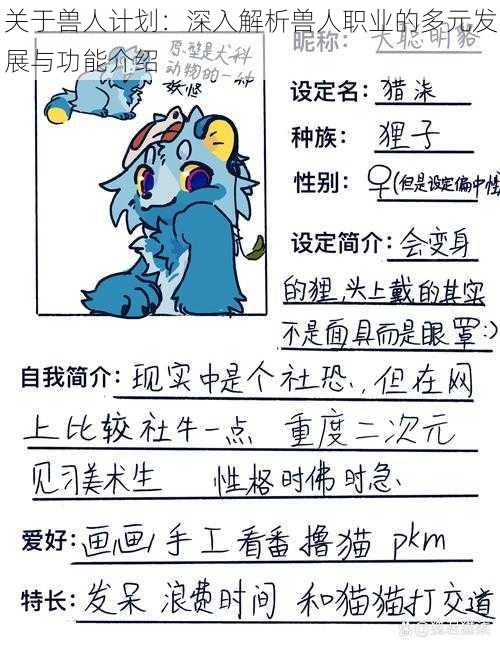 关于兽人计划：深入解析兽人职业的多元发
展与功能介绍
原型是犬科
动物的一种
妖怪
昵称：大聪明貉
设定名：猎柒
种族：狸子
性别：♀(但是设定偏中性
设定简介：会变身
的狸,头上戴的其实
不是面具而是眼罩:)
自我简介：现实中是个社恐,但在网
上比较社牛一点 重度二次元
见习美术生 性格时佛时急
爱好：画画/手工看番撸猫 pkm
特长：发呆 浪费时间 和猫猫打交道